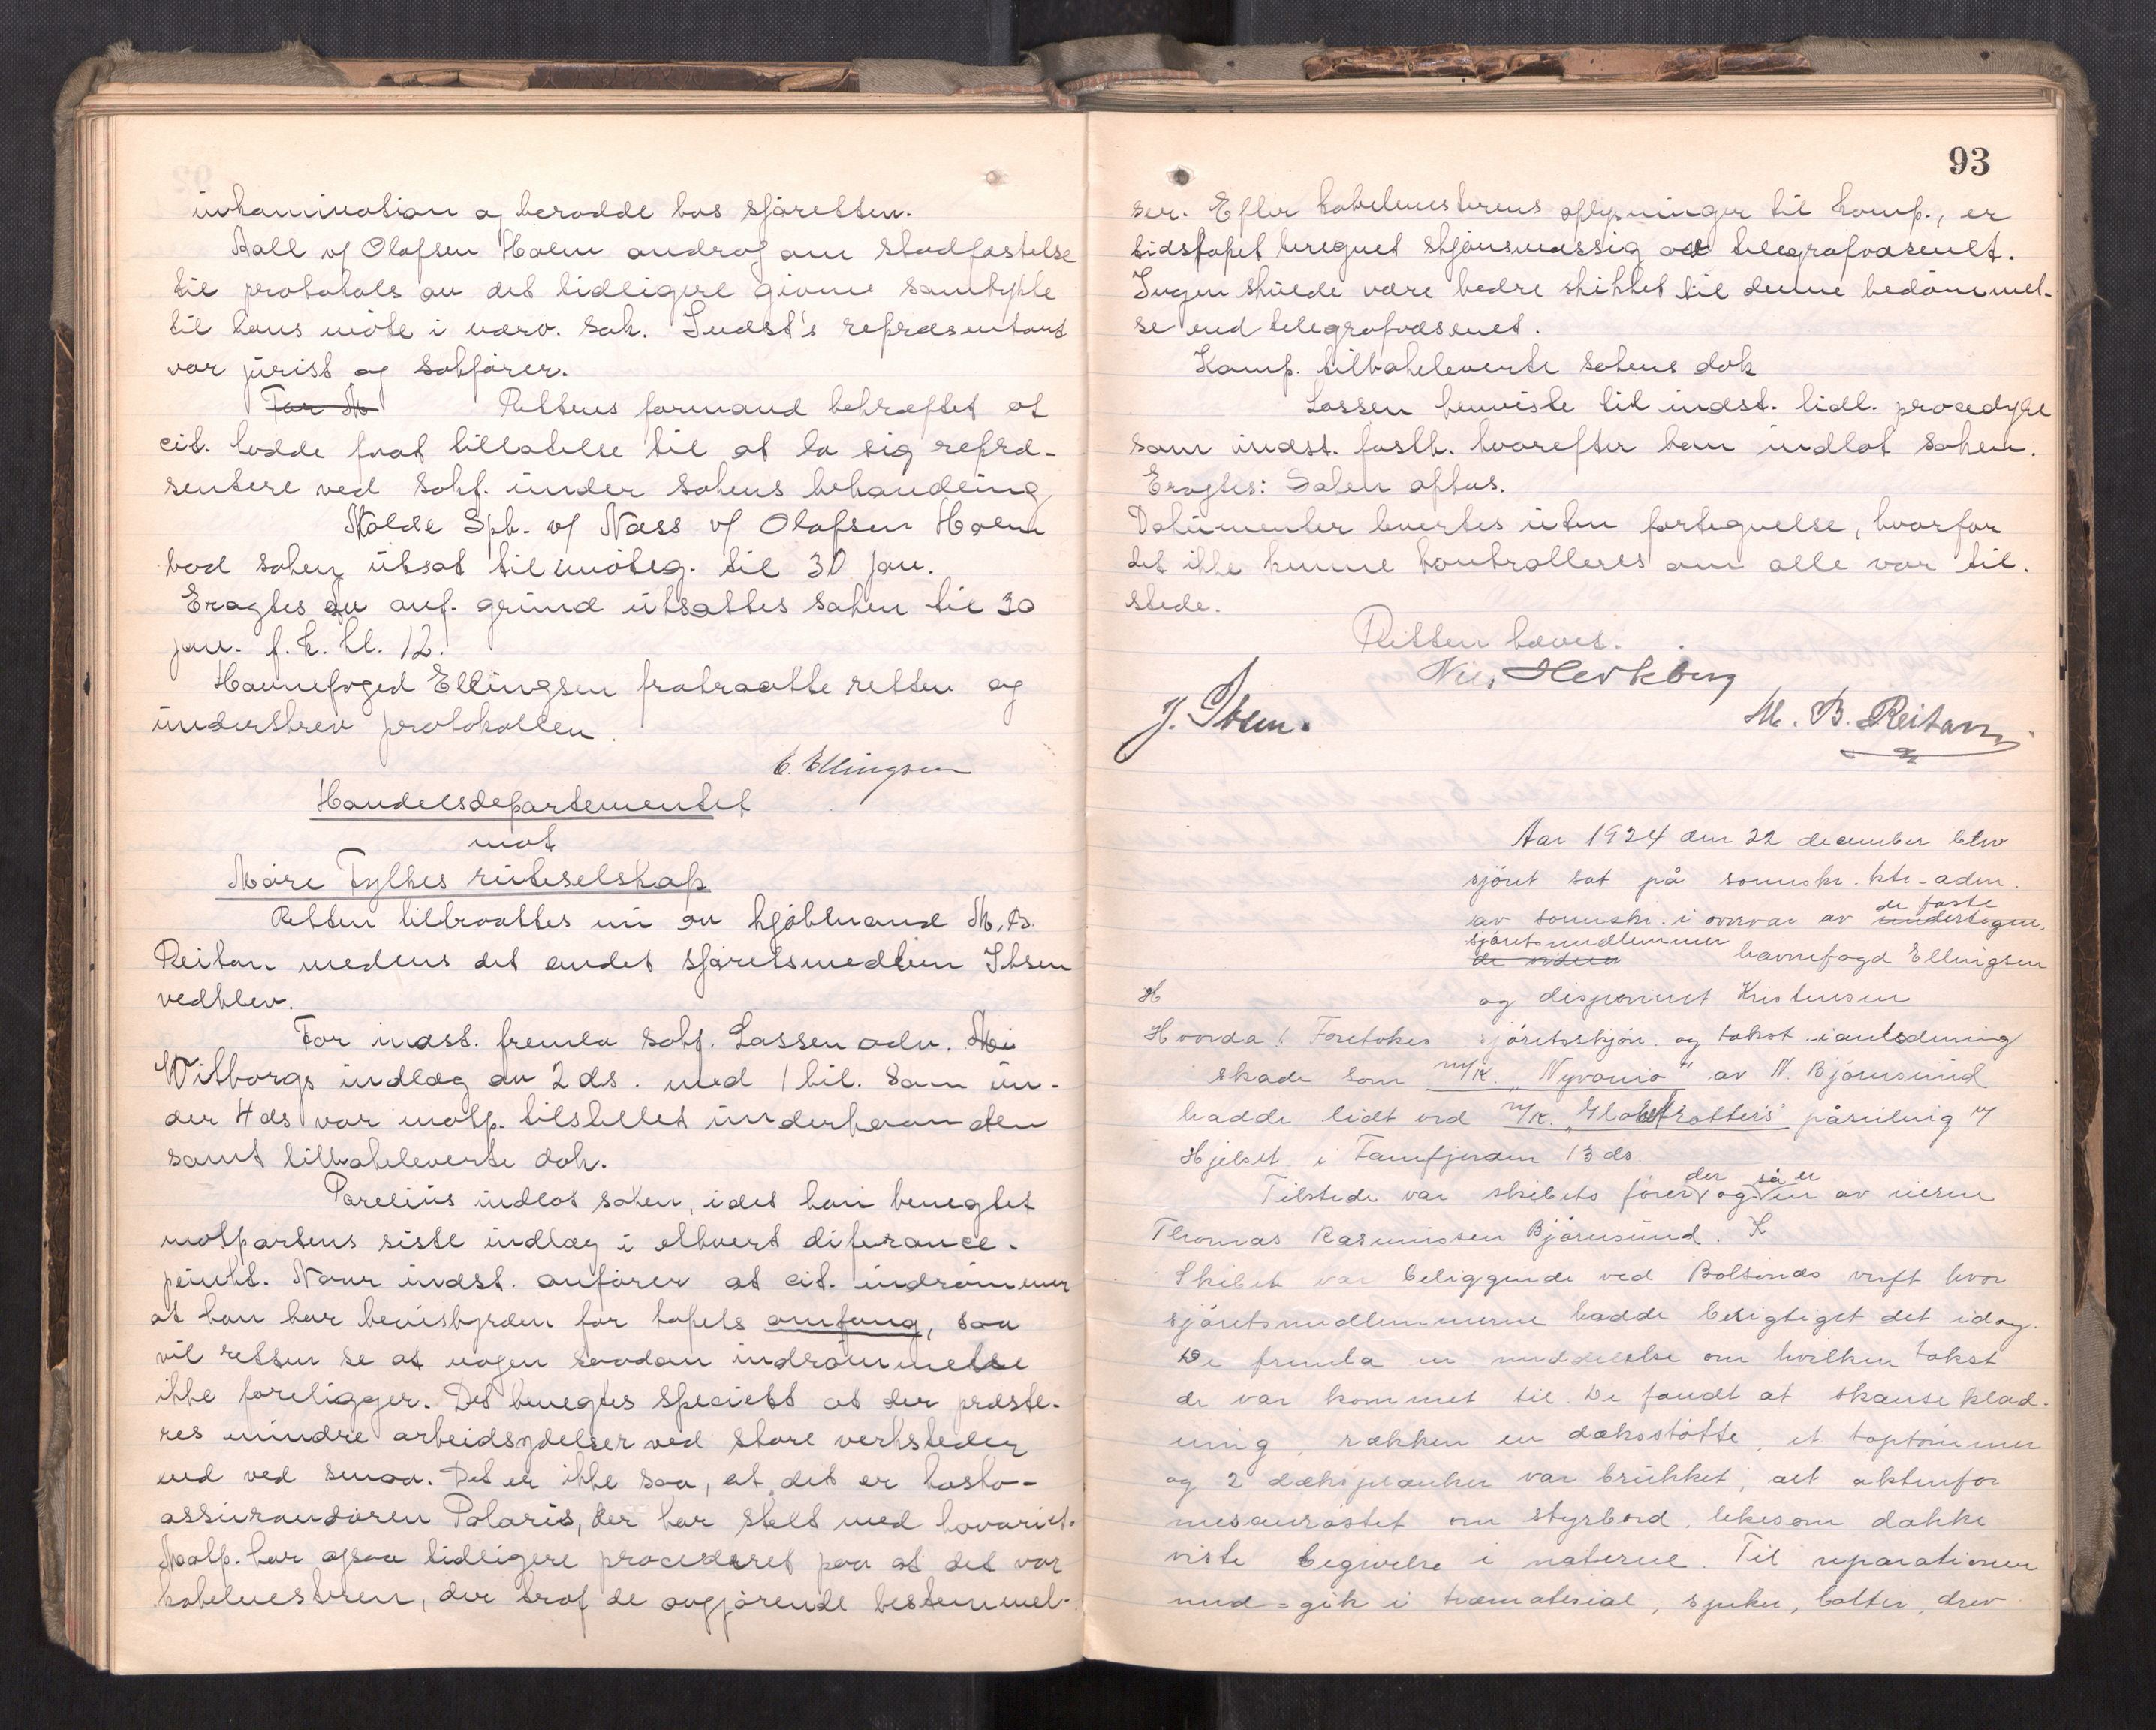 inkamination og berodde hos sjøretten.
Aall v/ Olafsen Holm androg om stadfæstelse
til protokols av det tidligere givne samtykke
til hans møte i nærv. sak. Indst's repræsentant
var jurist og sakfører.
For M Rettens formand bekræftet at
cit. hadde faat tillatelse til at la sig repræ-
sentere ved sakf. under sakens behandling
Molde Spb. v/ Næss v/ Olafsen Holm
bad saken utsat til imøteg. til 30 jan.
Eragtes av anf. grund utsattes saken til 30
jan. f. k. kl. 12.
Havnefoged Ellingsen fratraatte retten og
underskrev protokollen.
E. Ellingsen
Handelsdepartementet
mot
Møre Fylkes ruteselskap
Retten tiltraattes nu av kjøbmand M. B.
Reitan medens det andet sjøretsmedlem Ibsen
vedblev.
For indst. fremla sakf. Lassen adv.
Wilborgs indlæg av 2 ds. med 1 bil. som un-
der 4 ds var motp. tilstillet underhaanden
samt tilbakeleverte dok.
Parelius indlot saken, idet han benegtet
motpartens siste indlæg i ethvert diferance-
punkt. Naar indst. anfører at cit. indrømmer
at han har bevisbyrden for tapets omfang, saa
vil retten se at nogen saadan indrømmelse
ikke foreligger. Det benegtes specielt at der præste-
res mindre arbeidsydelser ved store verksteder
end ved smaa. Det er ikke saa, at det er kasko-
assurandøren Polaris, der har stelt med havariet.
Motp. har ogsaa tidligere procederet paa at det var
kabelmesteren, der traf de avgjørende bestemmel-
93
ser. Efter kabelmesterens oplysninger til komp., er
tidstapet beregnet skjønsmæssig av telegrafvæsenet.
Ingen skulde være bedre skikket til denne bedømmel-
se end telegrafvæsenet.
Komp. tilbakeleverte sakens dok
Lassen henviste til indst. tidl. procedyre
som indst. fasth. hvorefter han indlot saken.
Eragtes: Saken optas.
Dokumenter levertes uten fortegnelse, hvorfor
det ikke kunne kontrolleres om alle var til.
stede.
Retten hævet.
J. Ibsen. M. B. Reitan
Aar 1924 den 22 december blev
sjøret sat på sorenskr. kts-adm.
av sorenskr. i overvær av undertegn. de faste
de vidner sjøretsmedlemmer havnefogd Ellingsen
og disponent Kristensen
H
Hvorda: Foretokes sjøretsskjøn og takst i anledning
skade som m/k. "Nyvonio" av N. Bjørnsund
hadde lidt ved m/k. "Globetrotter's" påseiling v/
Hjelset i Famfjorden 13 ds.
Tilstede var skibets fører, der og så er en av eierne
Thomas Rasmussen Bjørnsund.
Skibet var beliggende ved Bolsønes verft hvor
sjøretsmedlemmerne hadde besigtiget det idag.
De fremla en meddelelse om hvilken takst
de var kommet til. De fandt at skanseklæd-
ning, rækken en dæksstøtte, et toptømmer
og 2 dæksplanker var brukket, alt aktenfor
mesanrøstet om styrbord. likesom dække
viste begivelse i naterne. Til reparationen
med-gik i træmaterial, spiker, bolter, drev